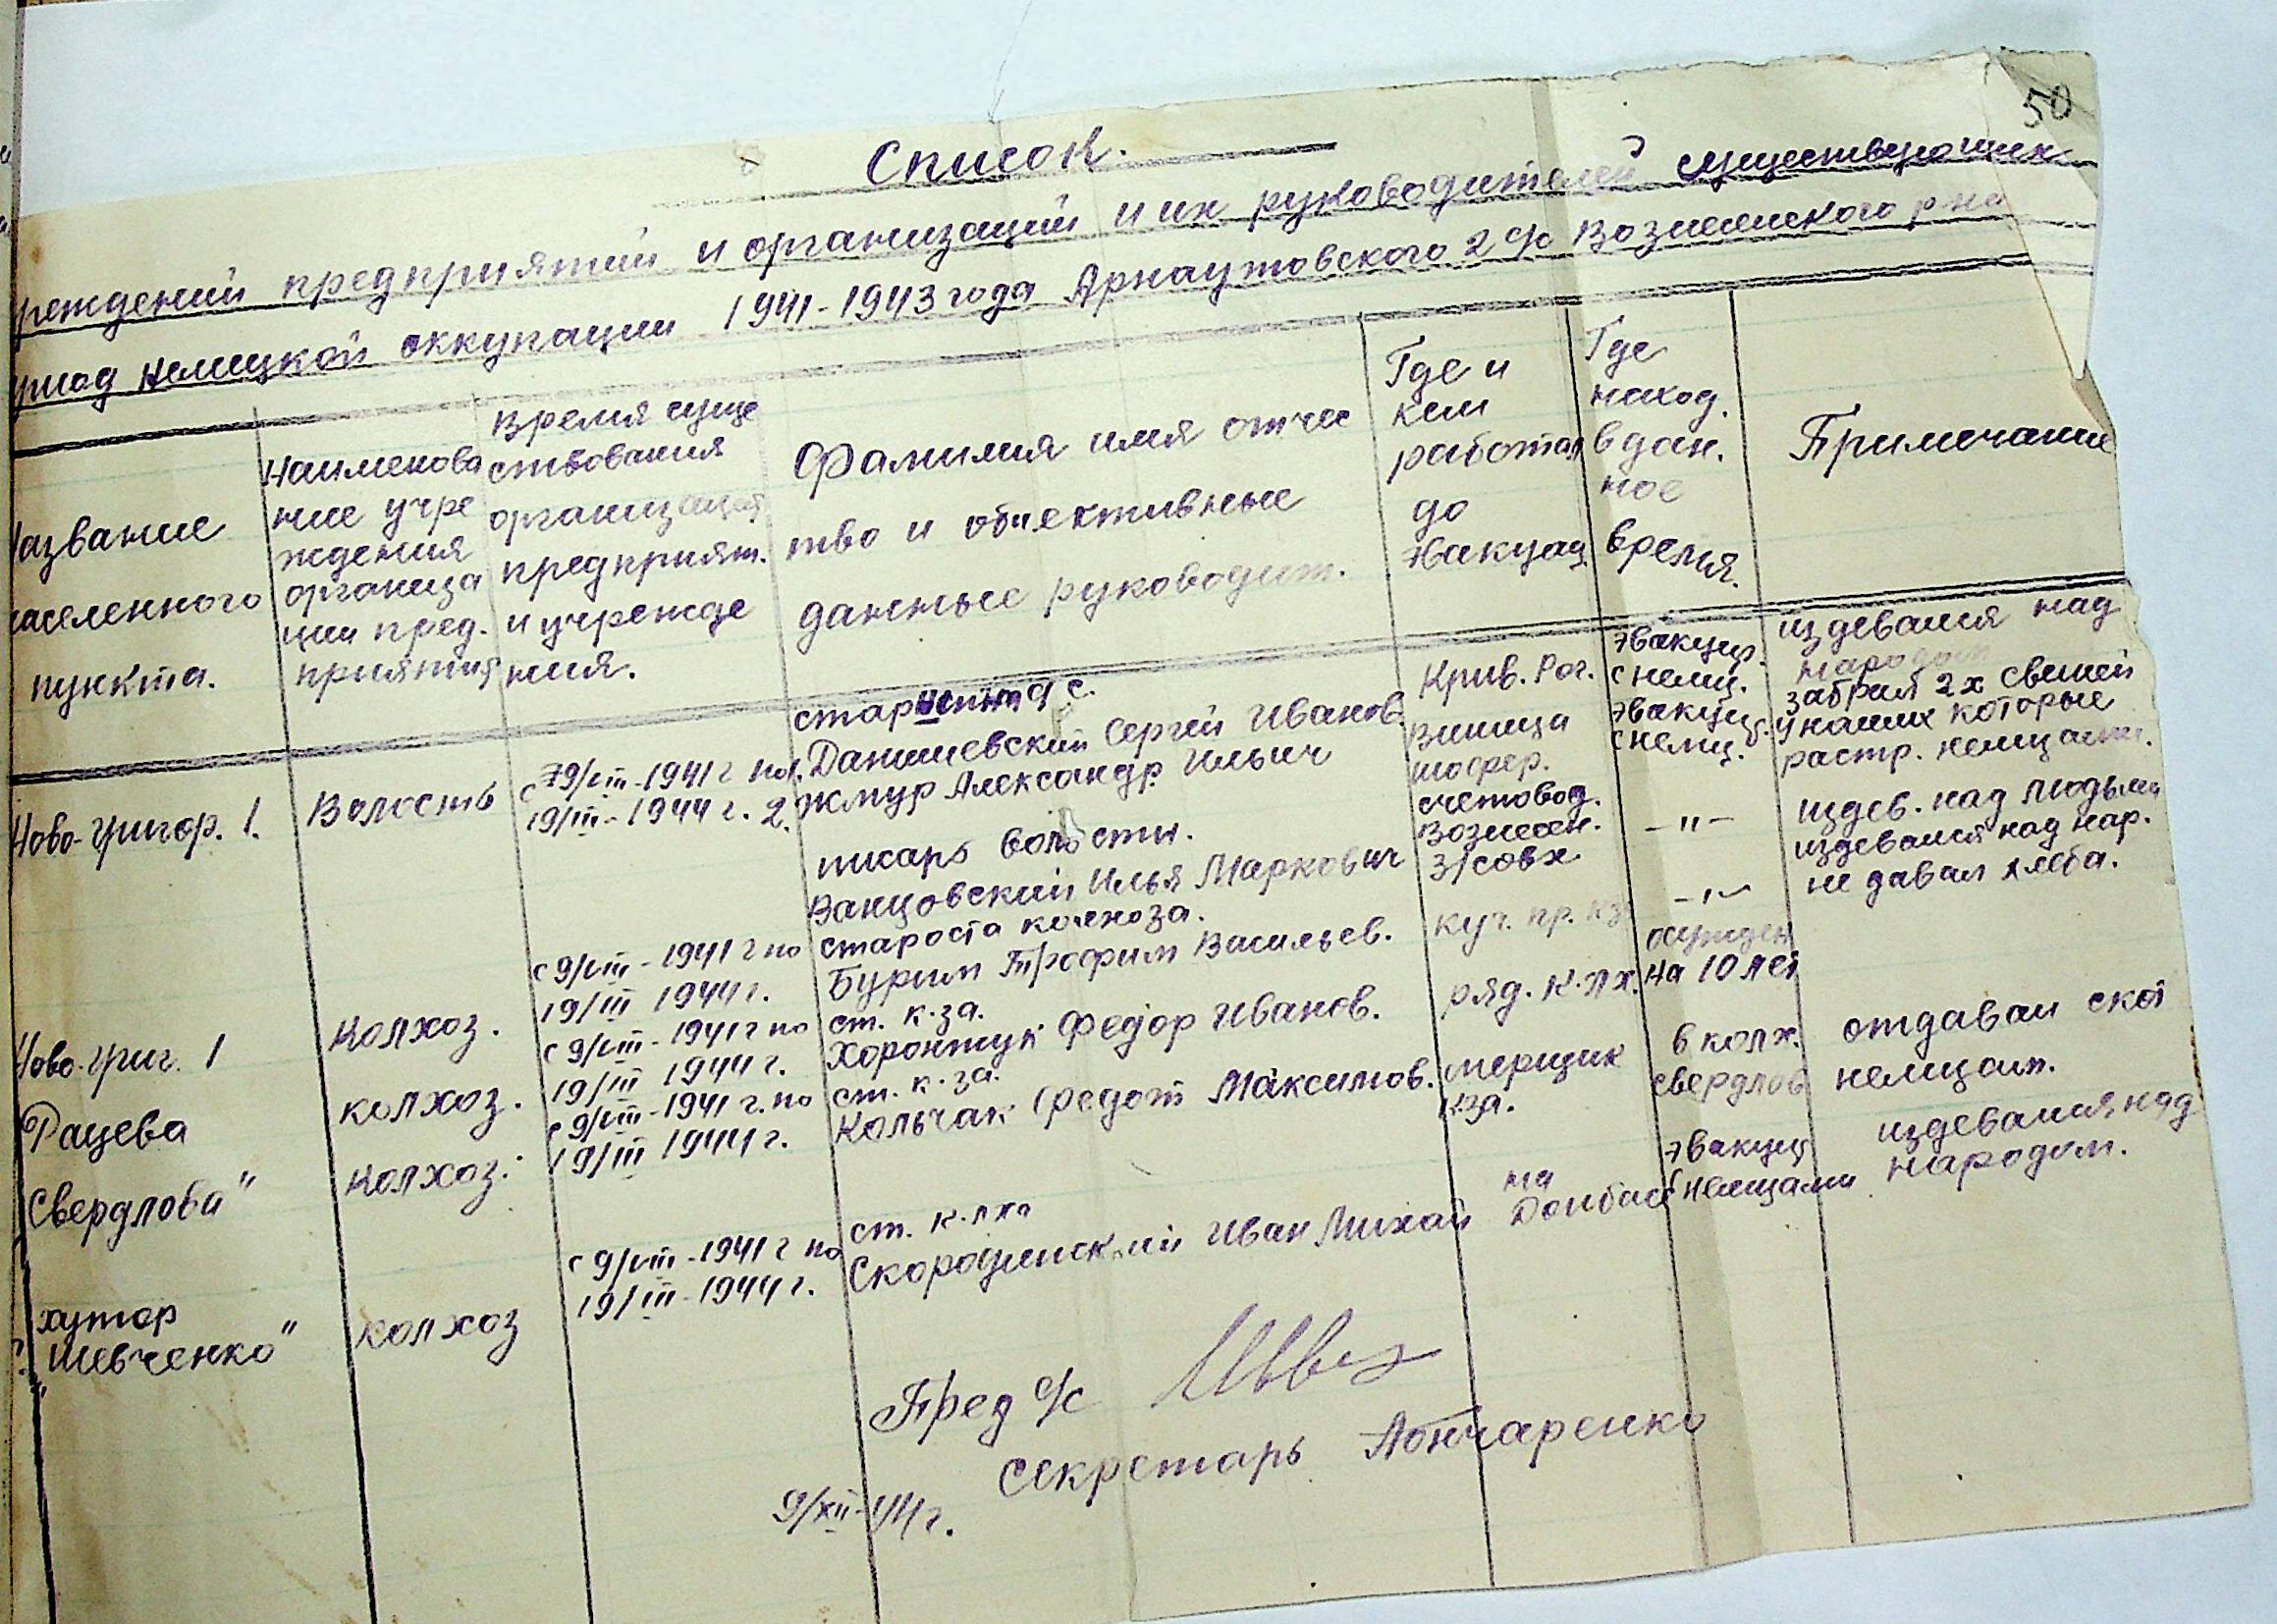 50
Список.
реждений предприятий и организаций и их руководителей существующих
риод немецкой оккупации 1941-1943 года Арнаутовского 2 с/с Вознесенского р на
азвание
аселенного
пункта.
Наименова
ние учре
ждения
организа
ции пред.
приятия
Время суще
ствования
организаций
предприят.
и учрежде
ния.
Фамилия имя отчес
тво и объективные
данные руководит.
Где и
кем
работал
до
эвакуац.
Где
наход.
в дан.
ное
время.
Примечание
Ново-григор. 1.
Волость
с 9/VIII-1941 г по
19/III-1944 г.
старшина с.
1. Данишевский Сергей Иванов.
2. Жмур Александр Ильич
писарь волости.
Ванцовский Илья Маркович
Крив. Рог.
Виница
шофер.
счетовод.
Вознесен.
з/совх
эвакуир.
с немц.
эвакуир.
с немц.
-"-
-"-
издевался над
народом
забрал 2х свиней
у наших которые
растр. немцами.
издев. над людьми
издевался над нар.
не давал хлеба.
Ново-григ. 1
Колхоз.
с 9/VIII-1941 г по
19/III 1944 г.
староста колхоза.
Бурим Трофим Васильев.
куч. пр. кз
осужден
на 10 лет
Рацева
колхоз.
с 9/VIII-1941 г по
19/III 1944 г.
ст. к-за.
Хоронжук Федор Иванов.
ряд. к-лх.
в колх.
свердлов
отдавал скот
немцам.
Свердлова"
колхоз.
с 9/VIII-1941 г. по
19/III 1944 г.
ст. к-за.
Кольчак Федот Максимов.
мерщик
к-за.
эвакуир
с немцами
издевался над
народом.
хутор
"Шевченко"
колхоз
с 9/VIII-1941 г по
19/III-1944 г.
ст. к-лха
Скородинский Иван Михай
на
Донбасс
Пред с/с
секретарь Гончаренко
9/XII-44 г.